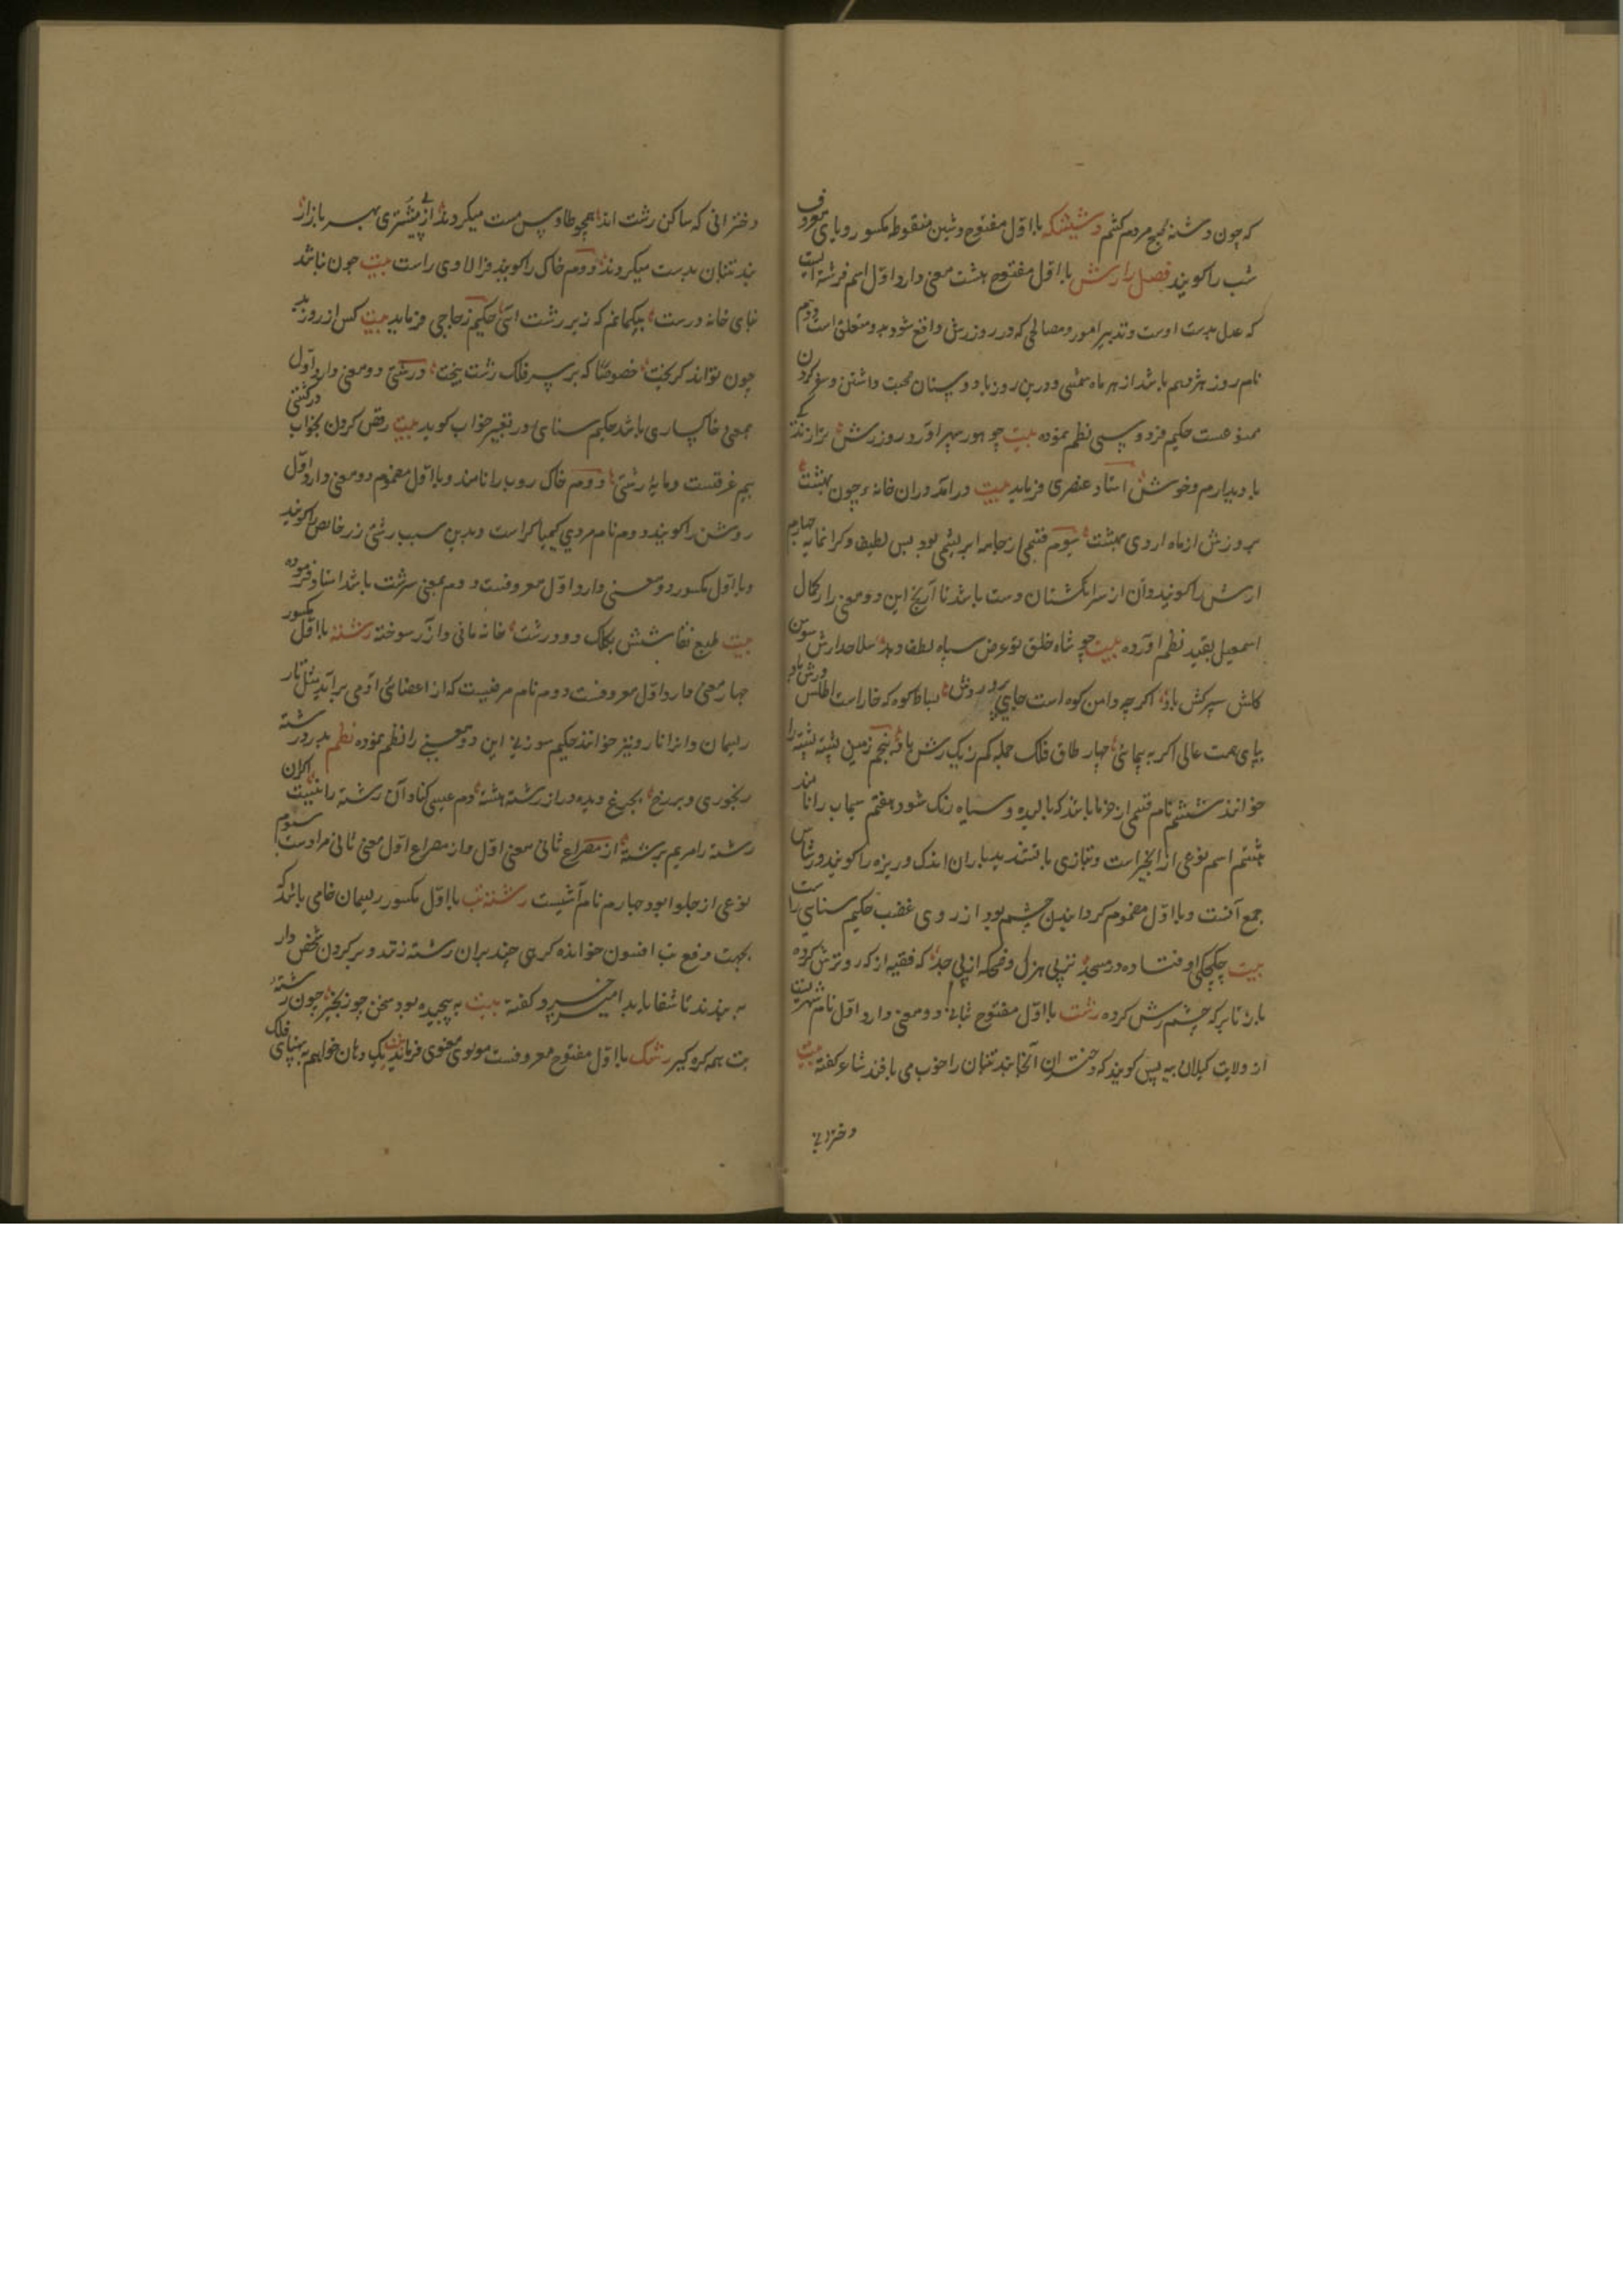 که چون دشنه بجمع مردم کشم دشیشکه با اول مفتوح و شین منقوطه مکسور و یای معروف
شب را کویند فصل را رش با اول مفتوح هشت معنی دارد اول اسم فرشته ایست
که عدل بدست اوست و تدبیر امور و مصالحی که در روز رش واقع شود بدو متعلق است دوم
نام روز هژدهم باشد از هر ماه شمسی و درین روز با دوستان صحبت داشتن و سفر کردن
هست حکیم فردوسی نظم نموده بیت چو هور سپهر آورد روز رش ترا زندگی
باد پدرام و خوش استاد عنصری فرماید بیت درآمد دران خانه چون بهشت
بروز رش از ماه اردی بهشت سوم قسمی از جامه ابریشمی بود بس لطیف و کرانمایه چهارم
ارش را کویند و آن از سر انکشتان دست باشد تا آرنج این دو معنی را کمال
اسمعیل بقید نظم آورده بیت چو شاه خلق تو عرض سپاه لطف دهد سلاحدارش سوسن
کلش سپرکش باد اکر چه دامن کوه است جای بساط کوه که خار است اطلس و رش باد
بپای همت عالی اکر بپمائی چهار طاق فلک جمله کم ز یک رش باد پنجم زمین پشته پشته را
خوانند ششم نام قسمی از خرما باشد که بالیده و سیاه رنک شود هفتم سیماب را نامند
هشتم اسم نوعی از انجیر است و بتازی با باران اندک و ریزه را کویند و رشاش
جمع آنست و با اول مضموم کردانیدن چشم بود از روی غضب حکیم سنایی راست
بیت اوفتاده در مسجد نز پی هزل و ضحکه از پی جد که فقیه از که رو ترش کرده
باز تا بر که چشم رش کرده رشت با اول مفتوح بثانی دو معنی دارد اول نام شهریست
از ولایت کیلان بیه پس کویند که دختران آنجا بند تنبان را خوب می بافند شاعر کفته بیت
دخترانی
دخترانی که ساکن رشت اند همچو طاوس مست میکردند از پی مشتری بهر بازار
بند تنبان بدست میکردند دوم خاک را کویند فرالاوی راست بیت چون نباشد
بنای خانه درست بیکمانم که زیر رشت است حکیم زجاجی فرماید بیت کس از روز بد
چون تواند کریخت خصوصا که بر سر فلک رشت بیخت و رشتی دو معنی دارد اول
بمعنی خاکساری باشد حکیم سنای در تعبیر خواب کوید بیت رقص کردن بخواب در کشتی
بیم غرقست و مایۀ رشتی دوم خاک روب را نامند و با اول مضموم دو معنی دارد اول
روشن را کویند دوم نام مردی کیمیاکر است و بدین سبب رشتی زر خالص را کویند
و با اول مکسور دو معنی دارد اول معروفست دوم بمعنی سرشت باشد استاد فرموده
بیت طبع نقاشش بکلک دود رشت خانه مانی و آزر سوخته رشته با اول مکسور
چهار معنی دارد اول معروفست دوم نام مرضیست که از اعضائ آدمی برآید مثل تار
ریسمان و آنرا نارو نیز خوانند حکیم سوزنی این دو معنی را نظم نموده نظم بدرد رشته
رنجوری و بر رخ بچرغ دیده در از رشته هشته دم عیسی کناد آن رشته را نیست کران
رشته را مریم برشته از مصراع ثانی معنی اول و از مصراع اول معنی ثانی مراد است سوم
نوعی از حلوا بود چهارم نام آشیست رشته تب با اول مکسور ریسمان خامی باشد که
بجهت دفع تب افسون خوانده کرهی چند بران رشته زنند و بر کردن شخص تب دار
به بندند تا شفا یابد امیر خسرو کفته بیت به پیچیده بود سخن چو زنجیر چون رشته
تب همه کره کیر رشک با اول مفتوح معروفست مولوی معنوی فرماید بیت یک دهان خواهم به پهنای فلک